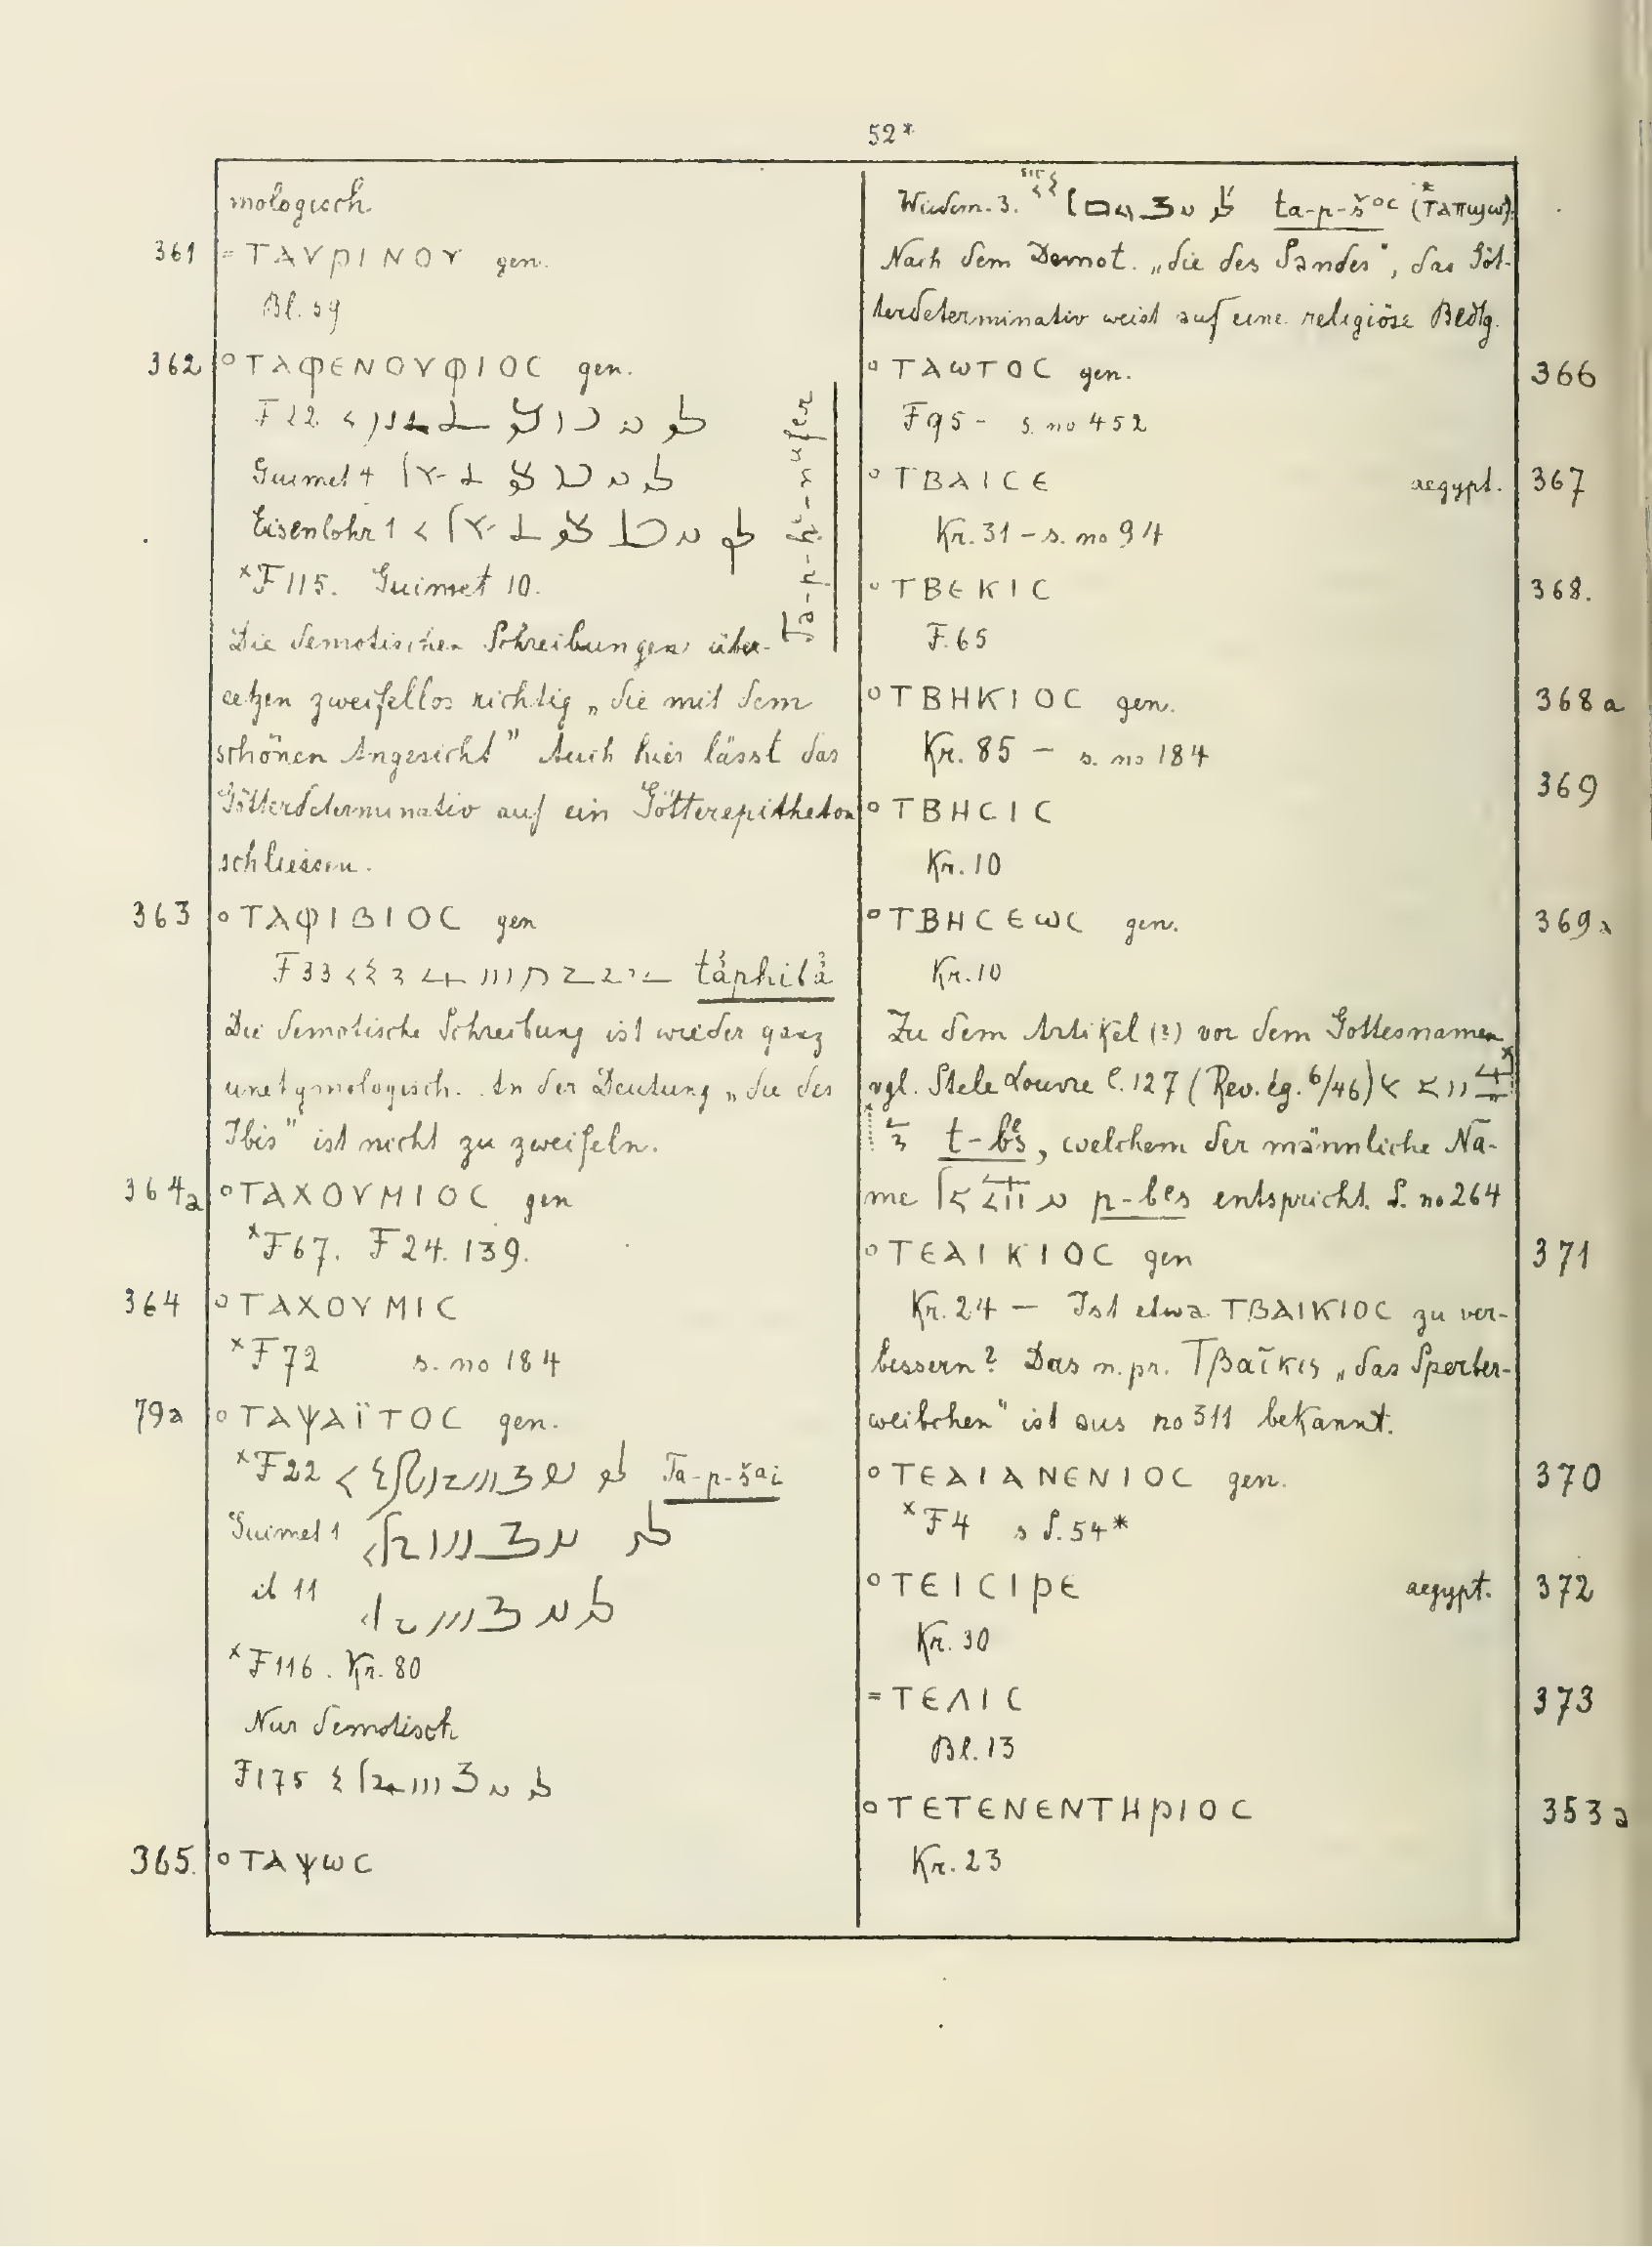 52*
mologisch.
361 = ΤΑΥΡΙΝΟΥ gen.
Bl. 59
362 ° ΤΑΦΕΝΟΥΦΙΟC gen.
F 22
Guimet 4
Eisenlohr 1
Ta-p-ḥr-nufer
×F 115. Guimet 10.
Die demotischen Schreibungen über-
setzen zweifellos richtig „die mit dem
schönen Angesicht" Auch hier lässt das
Götterdeterminativ auf ein Götterepitheton
schliessen.
363 ° ΤΑΦΙΒΙΟC gen
F 33
Die demotische Schreibung ist wieder ganz
unetymologisch. An der Deutung „die des
Ibis" ist nicht zu zweifeln.
364a ° ΤΑΧΟΥΜΙΟC gen
×F 67. F 24. 139.
364 ° ΤΑΧΟΥΜΙC
×F 72 s. no 184
79a ° ΤΑΨΑΪΤΟC gen.
×F 22 Ta-p-šai
Guimet 1
ib 11
×F 116. Kr. 80
Nur demotisch
F 175
365. ° ΤΑΨωC
Wiedem. 3. ta-p-šoc (*ταπϣω).
Nach dem Demot. „die des Sandes", das Göt-
terdeterminativ weist auf eine religiöse Bedtg.
° ΤΑωΤΟC gen. 366
F 95 - s. no 452
° ΤΒΑΙCΕ aegypt. 367
Kr. 31 - s. no 94
° ΤΒΕΚΙC 368.
F. 65
° ΤΒΗΚΙΟC gen. 368a
Kr. 85 — s. no 184
° ΤΒΗCΙC 369
Kr. 10
° ΤΒΗCΕωC gen. 369a
Kr. 10
Zu dem Artikel (?) vor dem Gottesnamen
vgl. Stele Louvre C. 127 (Rev. ég. 6/46)
t-bes, welchem der männliche Na-
me p-bes entspricht. S. no 264
° ΤΕΑΙΚΙΟC gen 371
Kr. 24 — Ist etwa ΤΒΑΙΚΙΟC zu ver-
bessern? Das n. pr. Τβαῖκις „das Sperber-
weibchen" ist aus no 311 bekannt.
° ΤΕΑΙΑΝΕΝΙΟC gen. 370
×F 4 s S. 54*
° ΤΕΙCΙΡΕ aegypt. 372
Kr. 30
= ΤΕΛΙC 373
Bl. 13
° ΤΕΤΕΝΕΝΤΗΡΙΟC 353a
Kr. 23